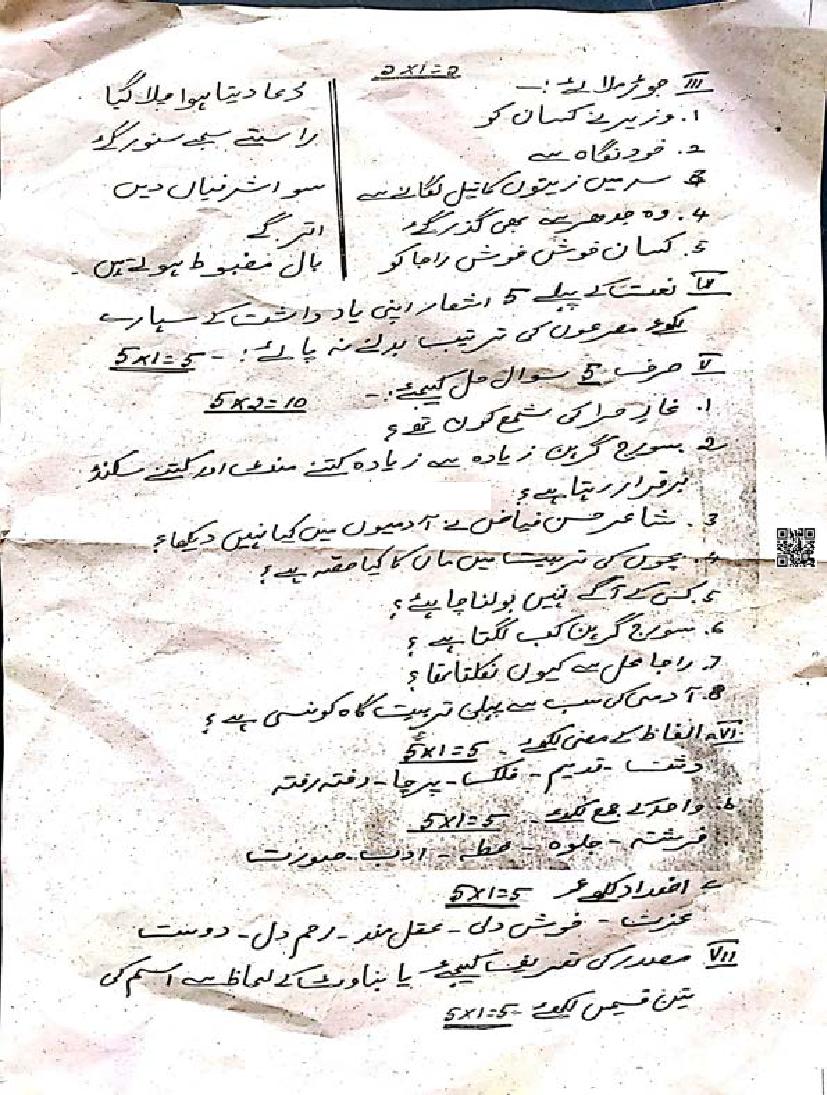 III جوڑ ملائے :- 5x1=5
1. وزیر نے کسان کو || دُعا دیتا ہوا چلا گیا
2. خود نگاہ سے || راستے سبھی سنور گئے
3. سر میں زیتون کا تیل لگانے سے || سو اشرفیاں دیں
4. وہ جدھر سے بھی گذر گئے || اتر گے
5. کسان خوش خوش راجا کو || بال مضبوط ہوتے ہیں
IV نعت کے پہلے 5 اشعار اپنی یاد داشت کے سہارے
لکھئے مصرعوں کی ترتیب بدلنے نہ پائے :- 5x1=5
V صرف 5 سوال حل کیجئے :-
5x2=10
1. غارِ حرا کی شمع کون تھے ؟
2. سورج گرہن زیادہ سے زیادہ کتنے منٹ اور کتنے سکنڈ
برقرار رہتا ہے ؟
3. شاعر حسن فیاض نے آدمیوں میں کیا نہیں دیکھا ؟
4. بچوں کی تربیت میں ماں کا کیا حصہ ہے ؟
5. کس کے آگے نہیں بولنا چاہئے ؟
6. سورج گرہن کب لگتا ہے ؟
7. راجا محل سے کیوں نکلتا تھا ؟
8. آدمی کی سب سے پہلی تربیت گاہ کونسی ہے ؟
VI الفاظ کے معنی لکھئے - 5x1=5
دفعتا - قدیم - فلک - پرچا - رفتہ رفتہ
ب. واحد کے جمع لکھئے - 5x1=5
فرشتہ - جلوہ - خطہ - ادب - صورت
اضداد لکھئے 5x1=5
عزت - خوش دلی - عقل مند - رحم دل - دوست
VII مصدر کی تعریف کیجئے یا بناوٹ کے لحاظ سے اسم کی
تین قسمیں لکھئے - 5x1=5